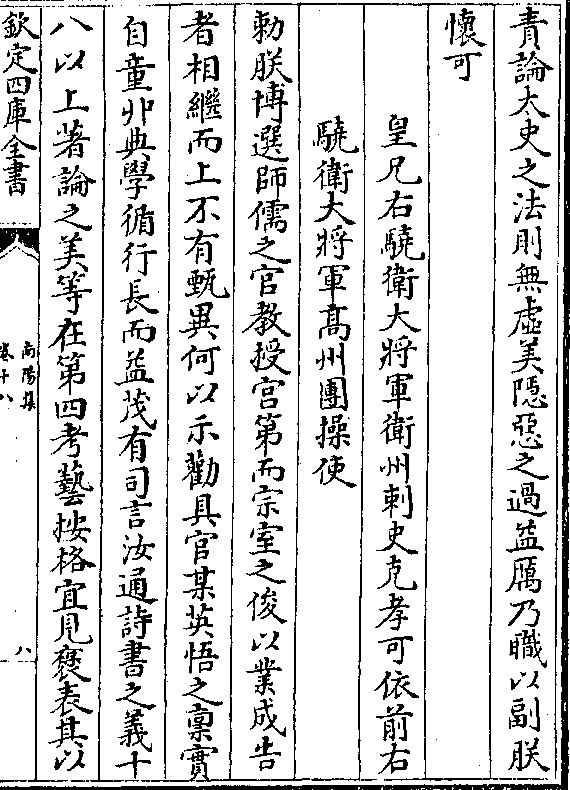 責論太史之法則無虛美隠惡之過益厲乃職以副朕
懐可
皇兄右驍衛大將軍衛州刺史克孝可依前右
驍衛大將軍髙州團操使
勅朕博選師儒之官教授宫第而宗室之俊以業成告
者相繼而上不有甄異何以示勸具官某英悟之禀實
自童丱典學循行長而益茂有司言汝通詩書之義十
八以上著論之美等在第四考藝按格宜見襃表其以
欽定四庫全書
南陽集
卷十八
八